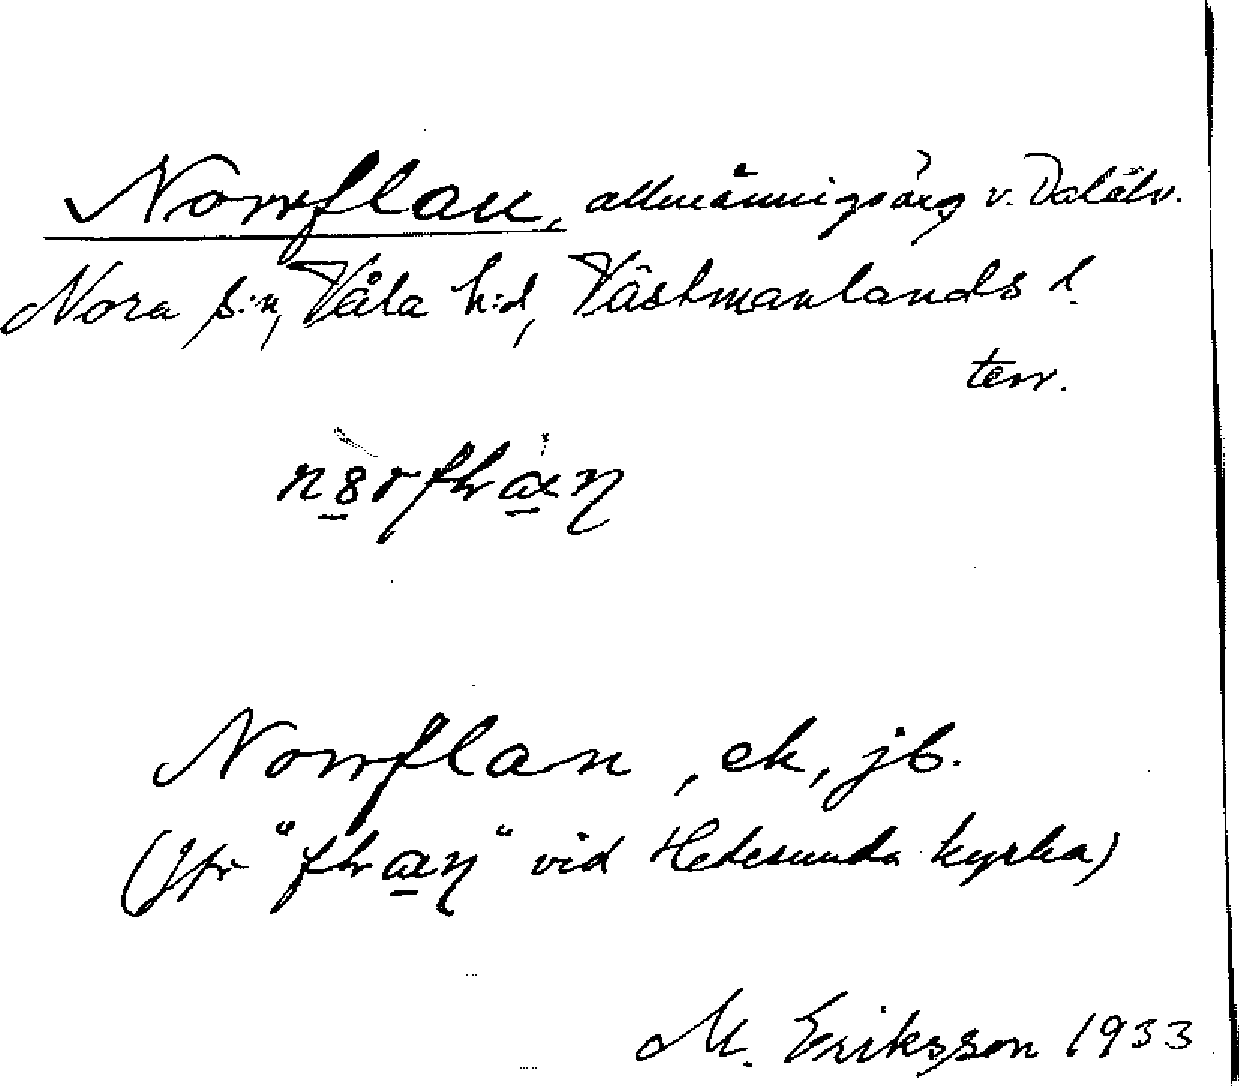 Norrflan, allmänningsäng v. Dalälv.
Nora s:n, Våla h:d, Västmanlands l.
terr.
Norrflan, ek, jb.
(Jfr " " vid Hedesunda kyrka)
M. Eriksson 1933